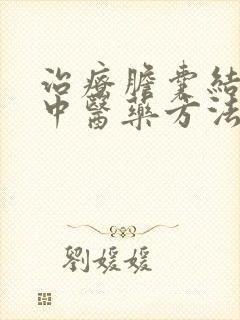 治療膽囊結
中醫藥方法
劉媛媛